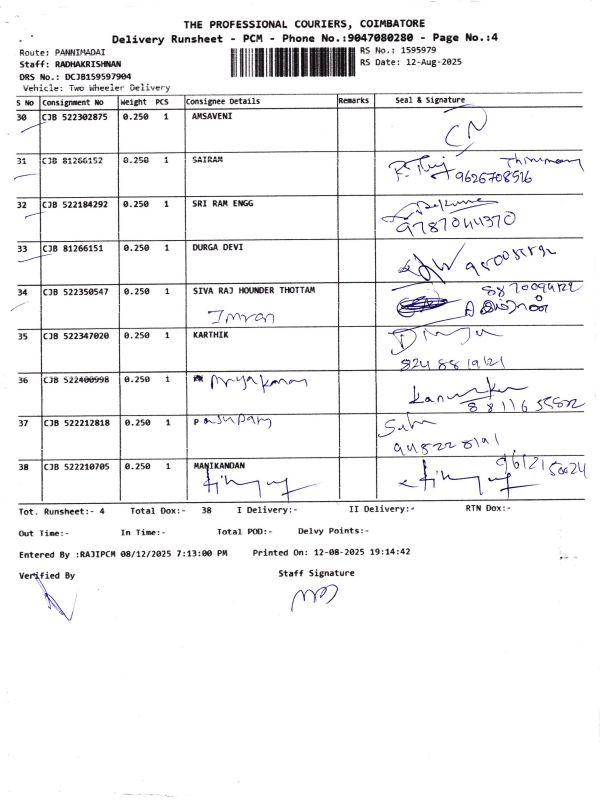 THE PROFESSIONAL COURIERS, COIMBATORE
Delivery Runsheet - PCM - Phone No.:9047080280 - Page No.:4
Route: PANNIMADAI
RS No.: 1595979
Staff: RADHAKRISHNAN
RS Date: 12-Aug-2025
DRS No.: DCJB159597904
Vehicle: Two Wheeler Delivery
S No Consignment No Weight PCS Consignee Details Remarks Seal & Signature
30 CJB 522302875 0.250 1 AMSAVENI
CN
31 CJB 81266152 0.250 1 SAIRAM
9626708516
32 CJB 522184292 0.250 1 SRI RAM ENGG
9787044370
33 CJB 81266151 0.250 1 DURGA DEVI
34 CJB 522350547 0.250 1 SIVA RAJ HOUNDER THOTTAM
Imran
35 CJB 522347020 0.250 1 KARTHIK
36 CJB 522400998 0.250 1
37 CJB 522212818 0.250 1
38 CJB 522210705 0.250 1 MANIKANDAN
Tot. Runsheet:- 4 Total Dox:- 38 I Delivery:- II Delivery:- RTN Dox:-
Out Time:- In Time:- Total POD:- Delvy Points:-
Entered By :RAJIPCM 08/12/2025 7:13:00 PM Printed On: 12-08-2025 19:14:42
Verified By Staff Signature